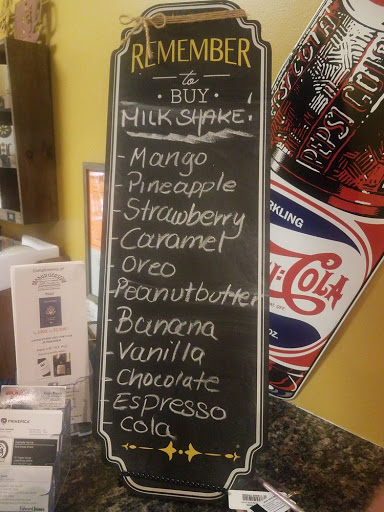 REMEMBER
to
BUY
MILKSHAKE!
- Mango
- Pineapple
- Strawberry
- Caramel
- Oreo
- Peanutbutter
- Banana
- Vanilla
- Chocolate
- Espresso
- Cola
PEPSI COLA
SPARKLING
COLA